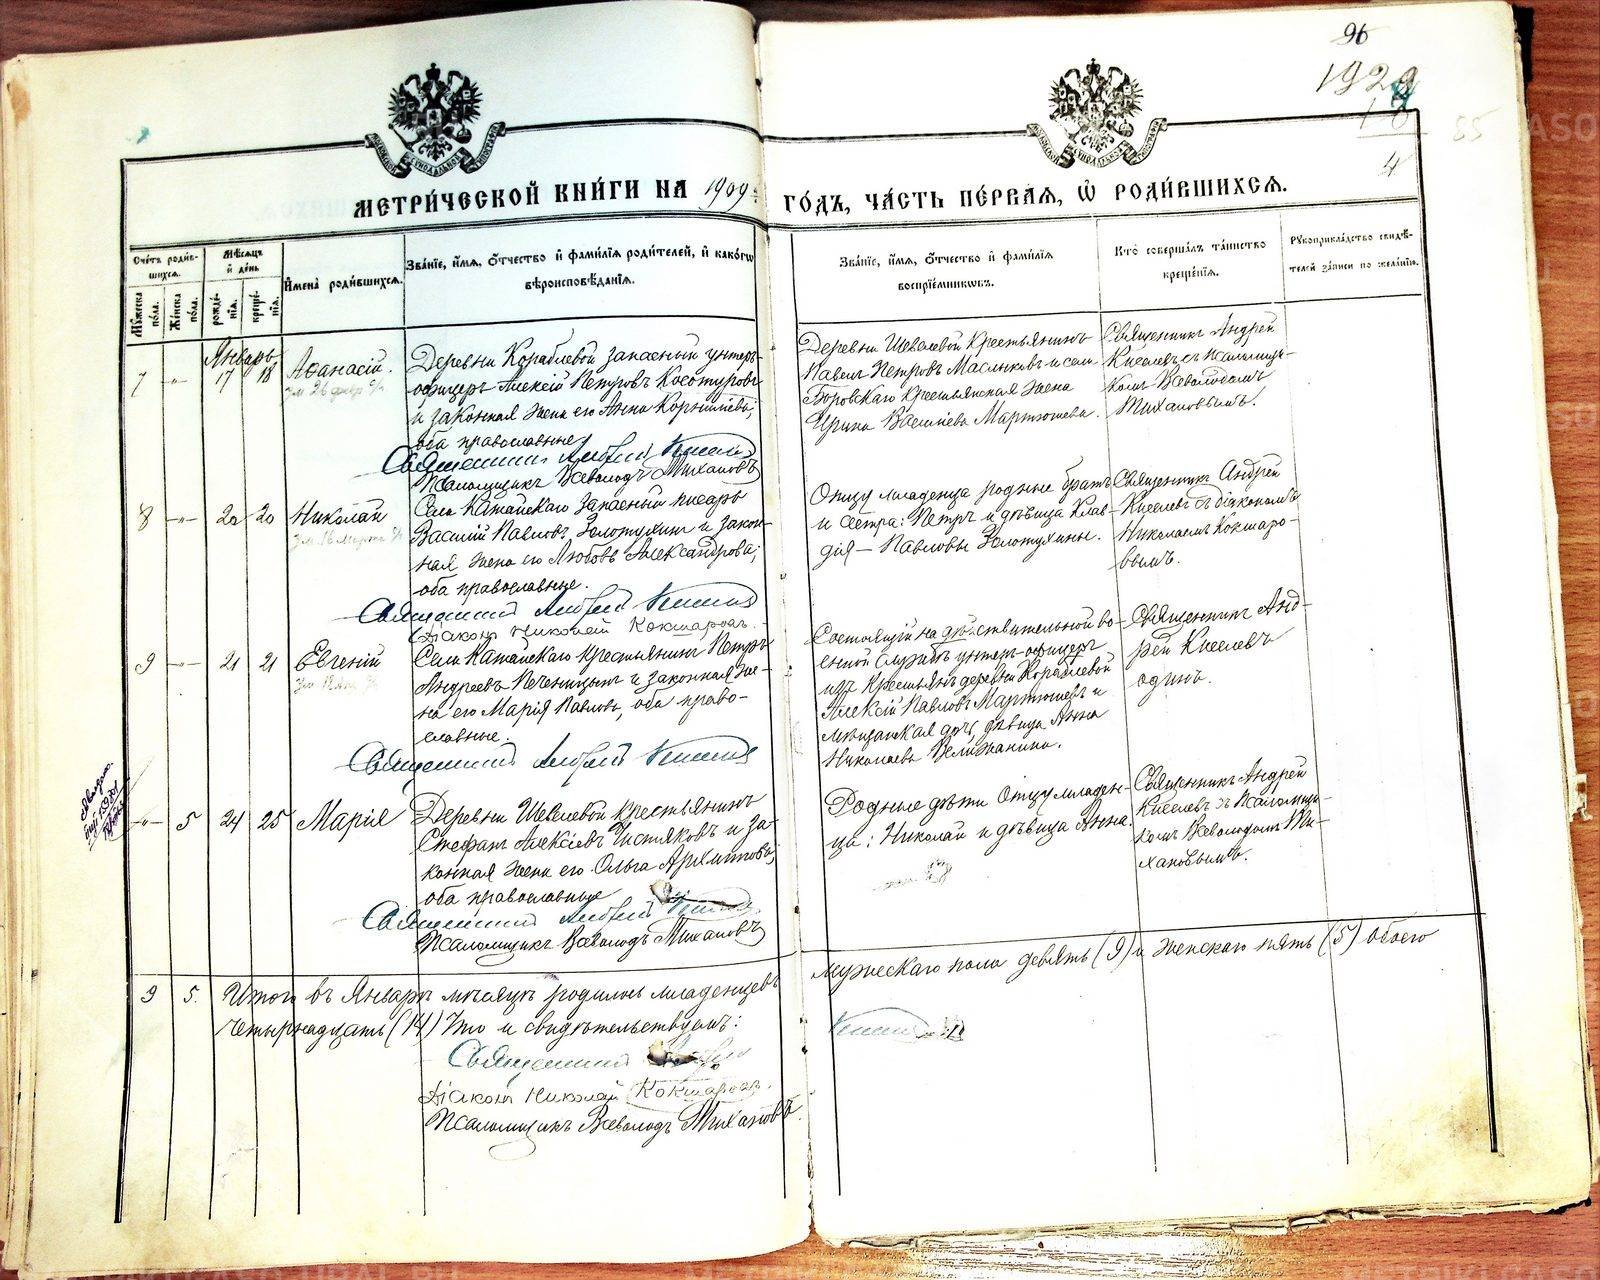 96
1929
18
4
85
МЕТРИ́ЧЕСКОЙ КНИ́ГИ НА 1909 ГО́ДЪ, ЧА́СТЬ ПЕ́РВАЯ, Ѡ҆ РОДИ́ВШИХСЯ.
Счетъ роди́вшихся.
Му́жеска по́ла.
Же́нска по́ла.
Мѣ́сяцъ и҆ де́нь
рожде́нїя.
креще́нїя.
И҆мена̀ роди́вшихся.
Зва́нїе, и҆́мя, ѻ҆́тчество и҆ фами́лїя роди́телей, и҆ како́гѡ
вѣроисповѣ́данїя.
Зва́нїе, и҆́мя, ѻ҆́тчество и҆ фами́лїя
воспрїе́мниковъ.
Кто̀ соверша́лъ та́инство
креще́нїя.
Рукоприкла́дство свидѣ́-
телей за́писи по жела́нїю.
Январь
7 -"- 17 18 Аѳанасій.
Деревни Кораблевой запасный унтеръ-
офицеръ Алексій Петровъ Косотуровъ
и законная жена его Анна Корнилiева;
оба православные
Священникъ Андрей Киселевъ
Псаломщикъ Всеволодъ Тихановъ
Деревни Шевелевой Крестьянинъ
Павелъ Петровъ Маслыковъ и села
Боровскаго Крестьянская жена
Ирина Василіева Мартюшева.
Священникъ Андрей
Киселевъ съ Псаломщи-
комъ Всеволодомъ
Тихановымъ.
8 -"- 20 20 Николай
Села Катайскаго Запасный писарь
Василій Павловъ Золотухинъ и закон-
ная жена его Любовь Александрова;
оба православные.
Священникъ Андрей Киселевъ
Діаконъ Николай Кокшаровъ.
Отцу младенца родные братъ
и сестра: Петръ и дѣвица Клав-
дія — Павловы Золотухины.
Священникъ Андрей
Киселевъ съ діакономъ
Николаемъ Кокшаро-
вымъ.
9 -"- 21 21 Евгеній
Села Катайскаго Крестьянинъ Петръ
Андреевъ Печеницынъ и законная же-
на его Марія Павлова, оба право-
славные.
Священникъ Андрей Киселевъ
Состоящій на дѣйствительной во-
енной службѣ унтеръ-офицеръ
изъ Крестьянъ деревни Кораблевой
Алексій Павловъ Мартюшевъ и
мѣщанская дочь, дѣвица Анна
Николаева Велижанина.
Священникъ Анд-
рей Киселевъ
одинъ.
-"- 5 24 25 Марія
Деревни Шевелевой Крестьянинъ
Стефанъ Алексіевъ Чистяковъ и за-
конная жена его Ольга Архипова;
оба православные
Священникъ Андрей Киселевъ
Псаломщикъ Всеволодъ Тихановъ
Родные дѣти Отцу младен-
ца: Николай и дѣвица Анна.
Священникъ Андрей
Киселевъ съ Псаломщи-
комъ Всеволодомъ Ти-
хановымъ.
9 5. Итого въ Январѣ мѣсяцѣ родилось младенцевъ мужескаго пола девять (9) и женскаго пять (5) обоего
четырнадцать (14) Что и свидѣтельствуемъ:
Священникъ Андрей Киселевъ
Діаконъ Николай Кокшаровъ.
Псаломщикъ Всеволодъ Тихановъ.